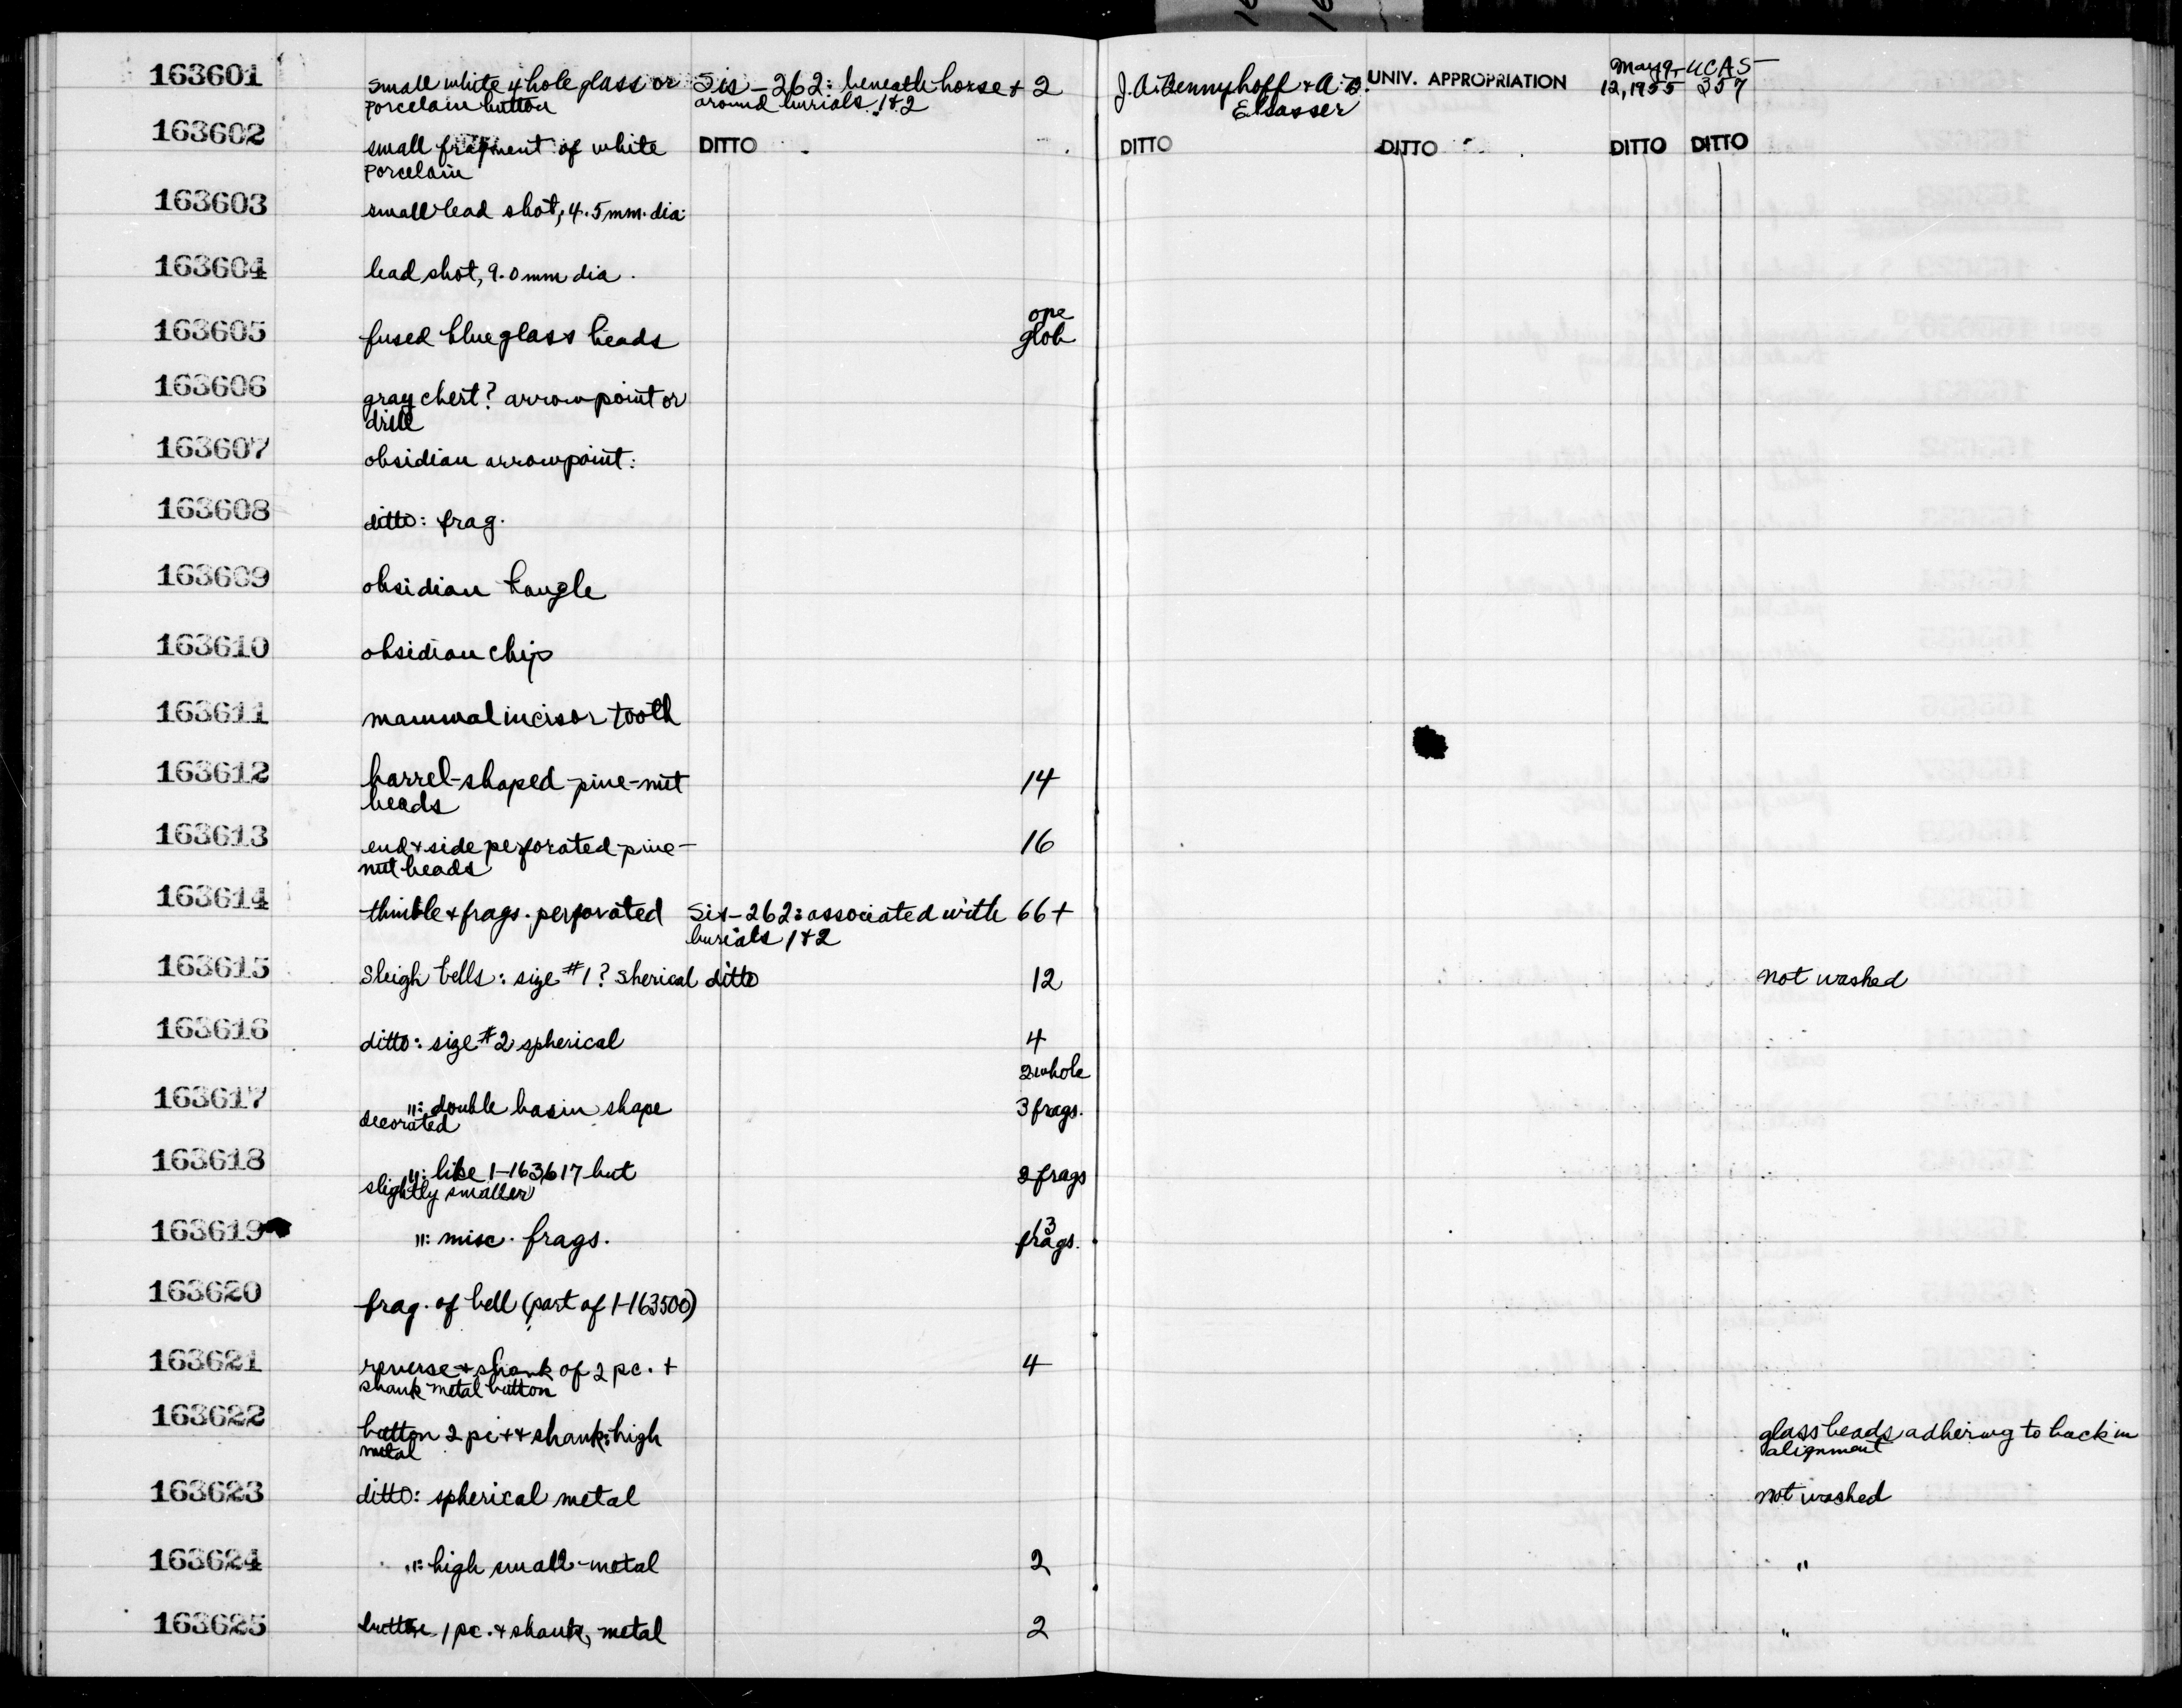 163601 small white 4 hole glass or Sis-262: beneath horse + 2 J.A. Bennyhoff + A.B. UNIV. APPROPRIATION May 9- UCAS-
porcelain button around burials 1+2 Elsasser 12, 1955 357
163602 small fragment of white DITTO DITTO DITTO DITTO DITTO
porcelain
163603 small lead shot, 4.5 mm. dia.
163604 lead shot, 9.0 mm dia.
163605 fused blue glass beads one
glob
163606 gray chert? arrowpoint or
drill
163607 obsidian arrowpoint:
163608 ditto: frag.
163609 obsidian bangle
163610 obsidian chip
163611 mammal incisor tooth
163612 barrel-shaped pine-nut 14
beads
163613 end + side perforated pine- 16
nut beads
163614 thimble + frags. perforated Sis-262: associated with 66+
burials 1+2
163615 Sleigh bells: size #1? Sherical ditto 12 not washed
163616 ditto: size #2 spherical 4
2 whole
163617 ": double basin shape 3 frags.
decorated
163618 ": like 1-163617 but 2 frags
slightly smaller
163619 ": misc. frags. 13
frags.
163620 frag. of bell (part of 1-163500)
163621 reverse + shank of 2 pc. + 4
shank metal button
163622 button 2 pc + + shank: high glass beads adhering to back in
metal alignment
163623 ditto: spherical metal not washed
163624 ": high small-metal 2 "
163625 button 1 pc. + shank, metal 2 "